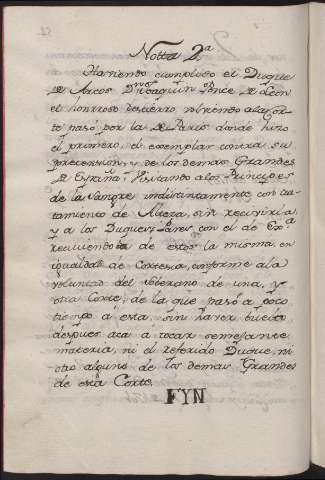 Notta 2ª
Haviendo cumplido el Duque
de Arcos Dn Joaquin Ponce de Leon
el honrroso destierro, volviendo a la Cor-
te pasó por la de Paris donde hizo
el primero, el exemplar contra su
pretension, y de los demas Grandes
de España: Visitando a los Principes
de la Sangre indistintamente con tra-
tamiento de Alteza, sin recivirla,
y a los Duques Pares con el de Exª
reciviendola de estos la misma en
igualdad de Cortesia, conforme a la
voluntad del soberano de una, y
otra Corte, de la que pasó a poco
tiempo a esta sin haver buelto
despues aca a tocar semejante
materia, ni el referido Duque, ni
otro alguno de los demas Grandes
de esta Corte.
FYN